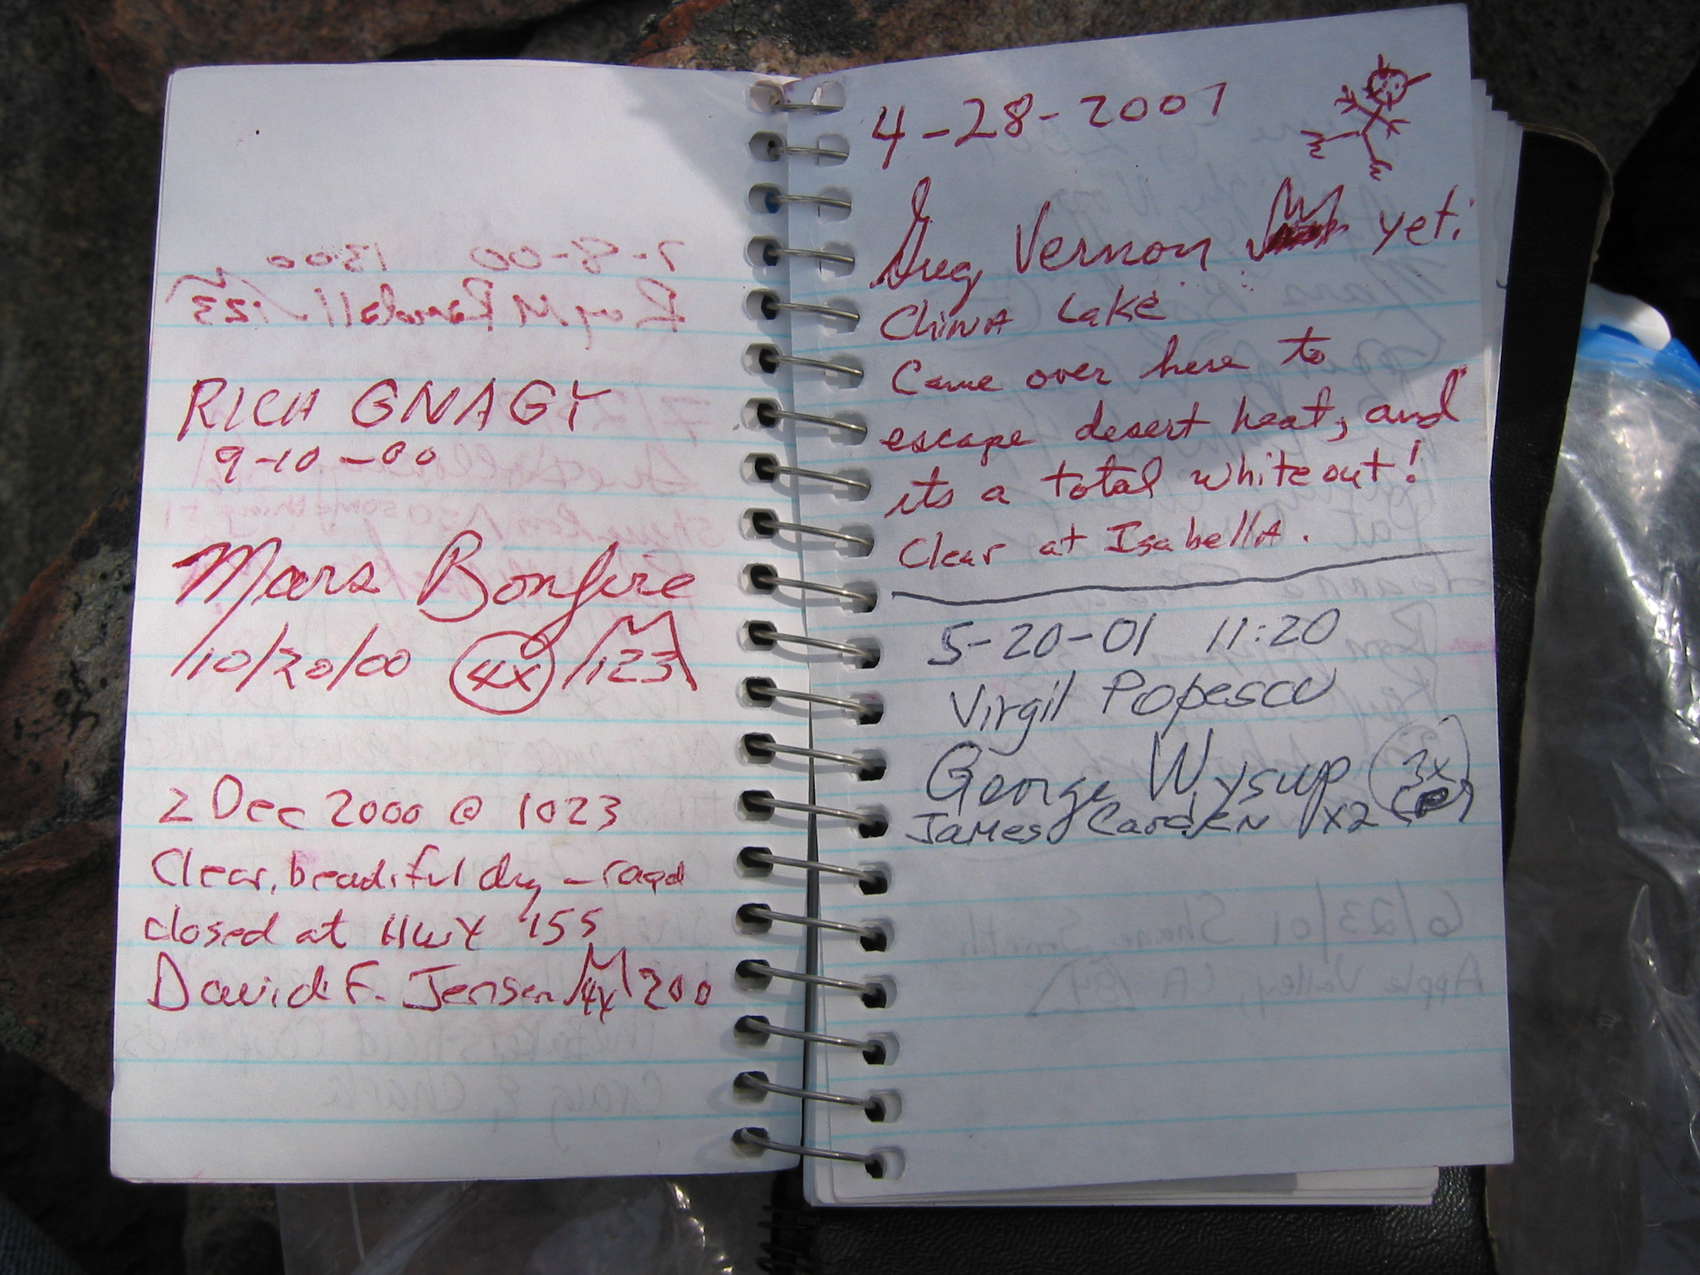 RICH GNAGY
9-10-00
Mars Bonfire
10/20/00 4x 123
2 Dec 2000 @ 1023
Clear, beautiful day - road
closed at HWY 155
David F. Jensen 4x 200
4-28-2001
Greg Vernon yet!
CHINA Lake
Came over here to
escape desert heat, and
its a total whiteout!
Clear at IsabellA.
5-20-01 11:20
Virgil Popescu
George Wysup 3x
JAMES CARDEN x2